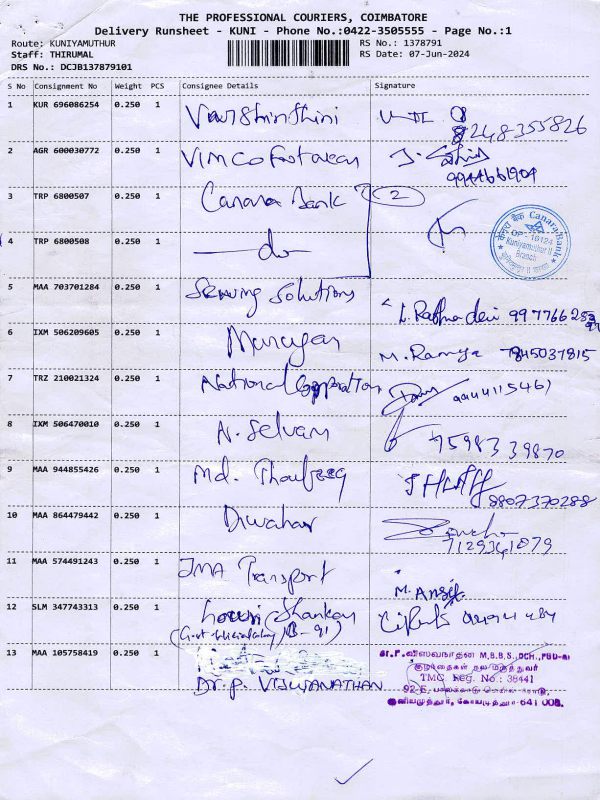 THE PROFESSIONAL COURIERS, COIMBATORE
Delivery Runsheet - KUNI - Phone No.:0422-3505555 - Page No.:1
Route: KUNIYAMUTHUR
Staff: THIRUMAL
DRS No.: DCJB137879101
RS No.: 1378791
RS Date: 07-Jun-2024
S No Consignment No Weight PCS Consignee Details Signature
1 KUR 696086254 0.250 1 8248355826
2 AGR 600030772 0.250 1 Vimco Footwear 9944661904
3 TRP 6800507 0.250 1 Canara Bank 2
4 TRP 6800508 0.250 1 do
केनरा बैंक Canara Bank
DP - 16124
Kuniyamuthur II
Branch
5 MAA 703701284 0.250 1 Serving Solutions
6 IXM 506209605 0.250 1 Murugan M. Ramya 7845037815
7 TRZ 210021324 0.250 1 National Corporation 9944115461
8 IXM 506470010 0.250 1 N. Selvam 7598339870
9 MAA 944855426 0.250 1 Md. 8807370288
10 MAA 864479442 0.250 1 Diwahar 7129361079
11 MAA 574491243 0.250 1 JMA Transport M. Ansif
12 SLM 347743313 0.250 1 Shankar
13 MAA 105758419 0.250 1
Dr. P. VISWANATHAN
டா.P.விஸ்வநாதன் M.B.B.S., DCH.,
குழந்தைகள் நல மருத்துவர்
TMC Reg. No.: 38441
92-E, பாலக்காடு மெயின் ரோடு,
குனியமுத்தூர், கோயமுத்தூர்-641 008.